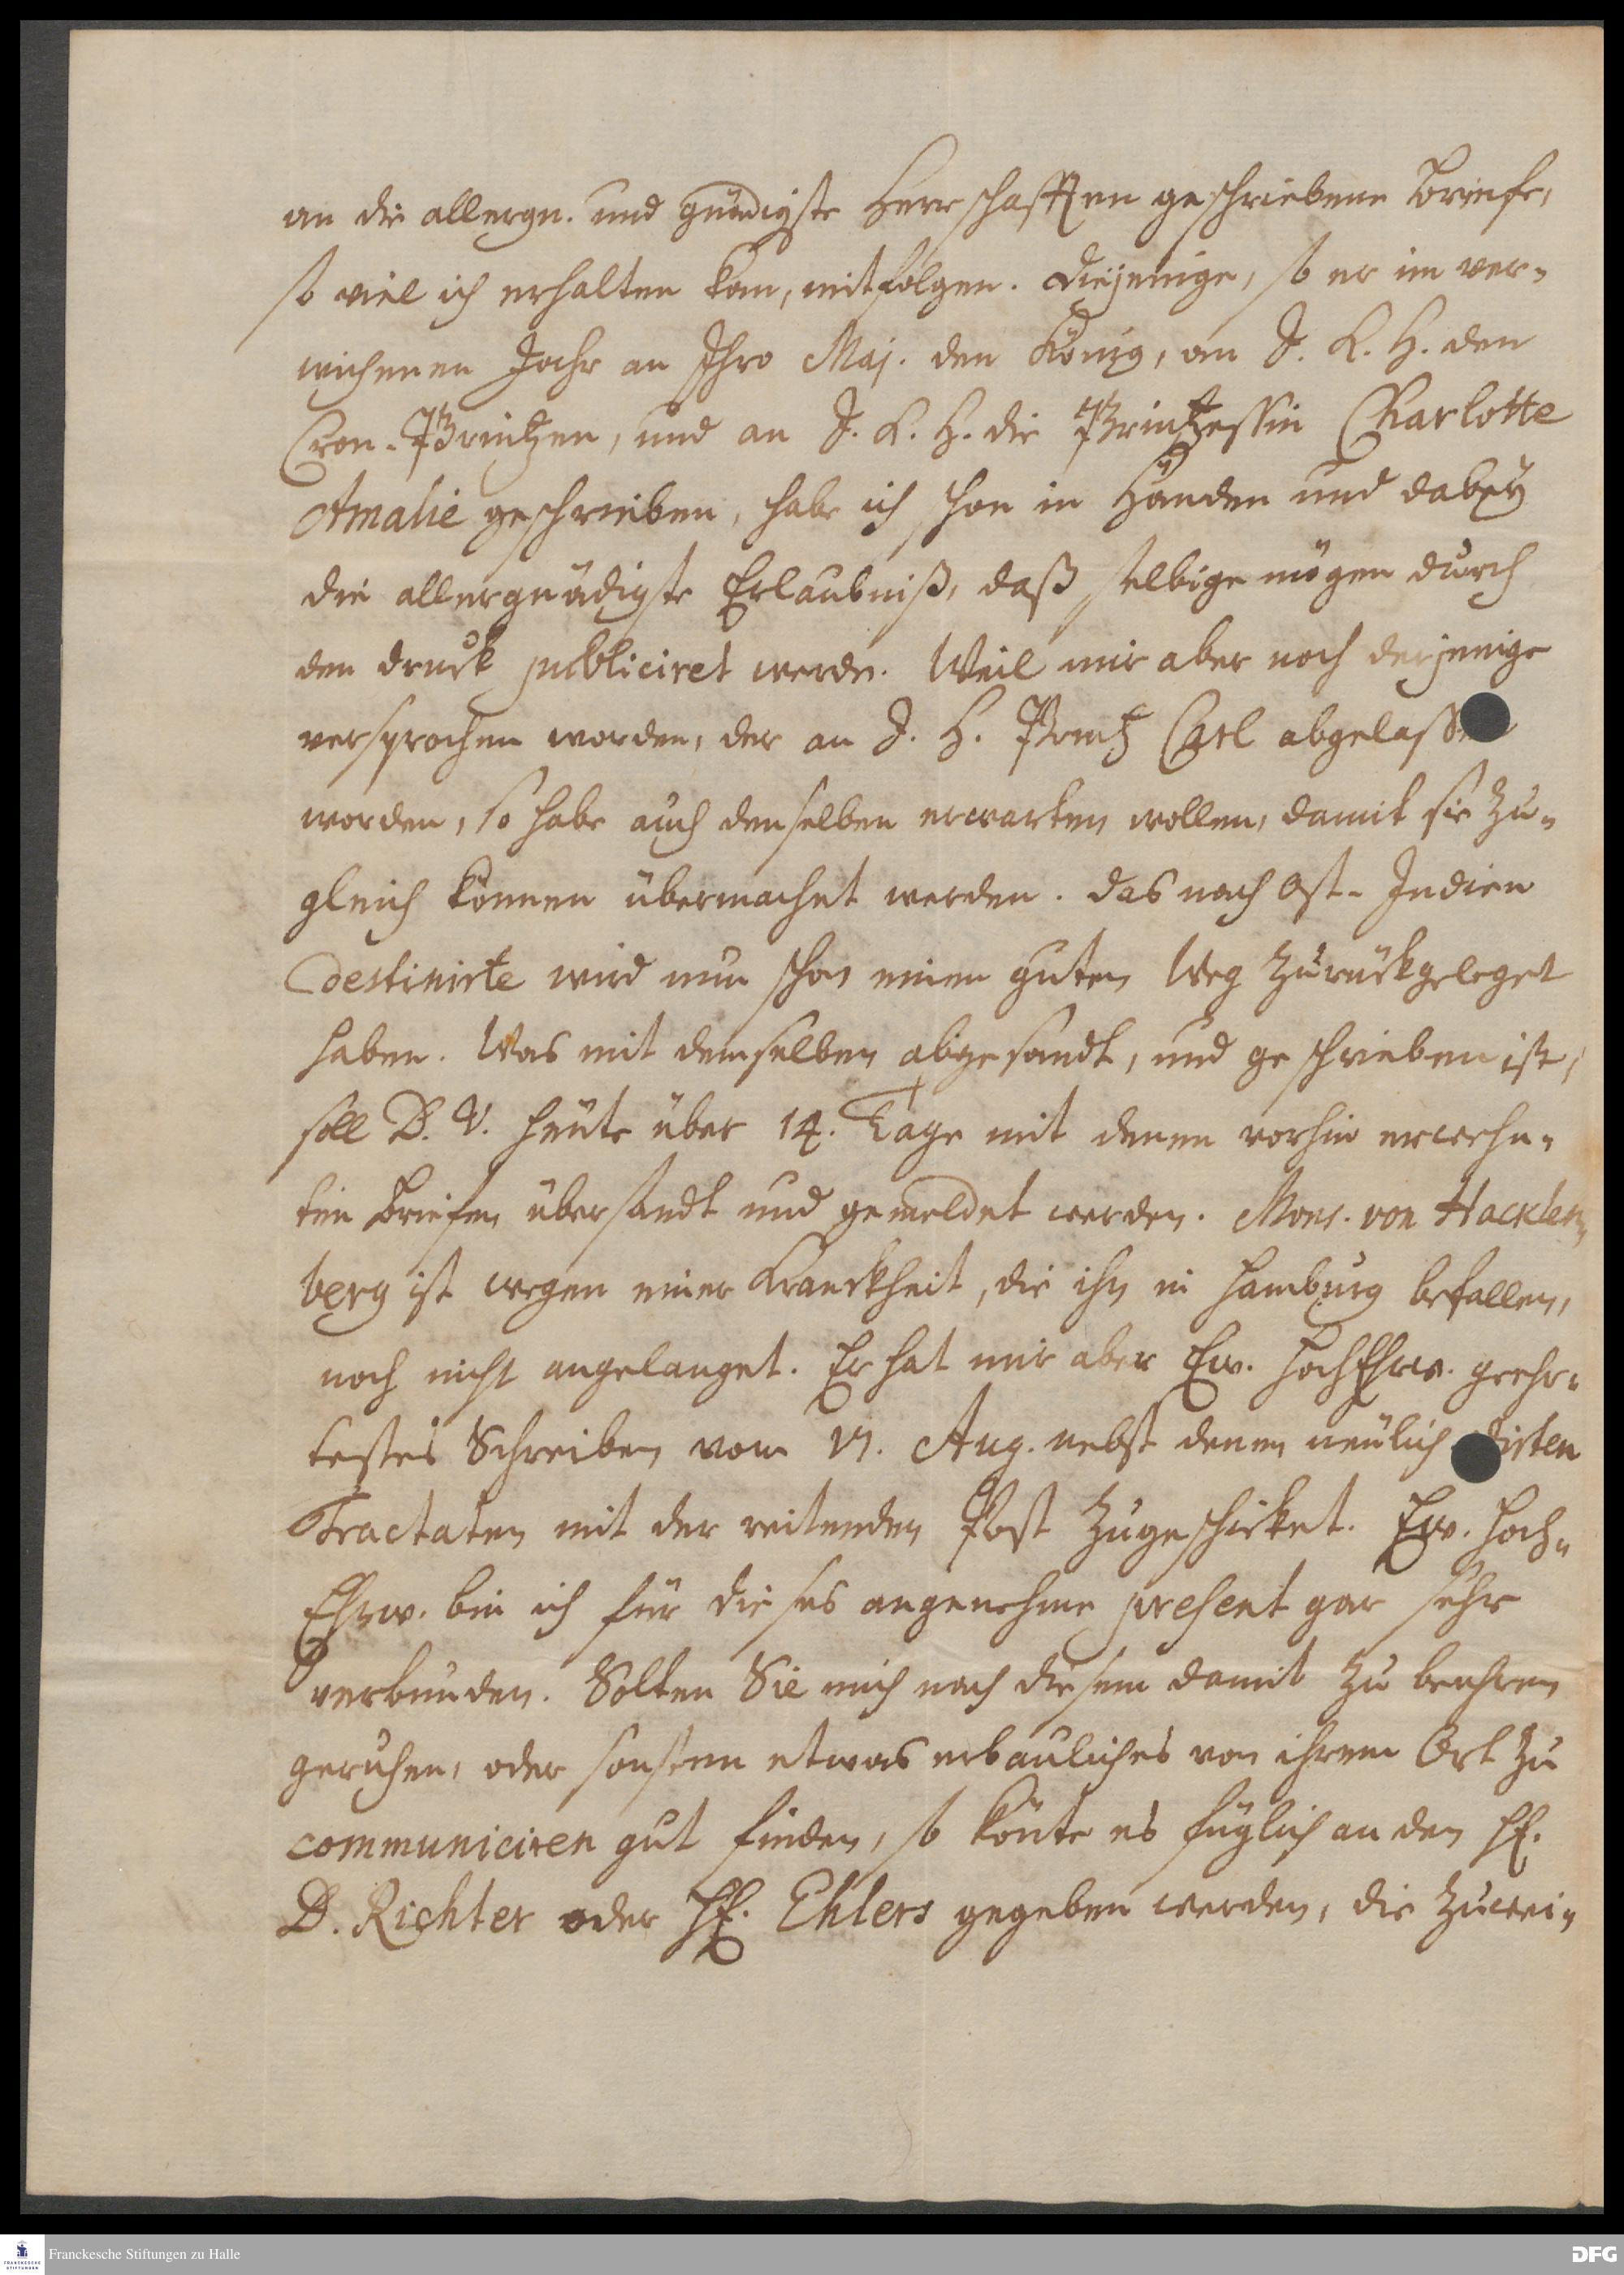 an die allergn. und gnädigste Herrschafften geschriebene Briefe,
so viel ich erhalten kan, mitfolgen. Diejenige, so er im ver-
wichenen Jahr an Ihro Maj. den König, an I. K. H. den
Cron-Printzen, und an I. K. H. die Printzessin Charlotte
Amalie geschrieben, habe ich schon in Händen und dabey
die allergnädigste Erlaubniß, daß selbige mögen durch
den druck publiciret werde. Weil mir aber noch derjenige
versprochen worden, der an I. H. Printz Carl abgelaßen
worden, so habe auch denselben erwarten wollen, damit sie zu-
gleich können übermachet werden. Das nach Ost-Indien
destinirte wird nun schon einen guten Weg zurückgeleget
haben. Was mit demselben abgesandt, und geschrieben ist,
soll D. V. heute über 14. Tage mit denen vorhin erwehn-
ten Briefen übersandt und gemeldet werden. Mons. von Hacklen-
berg ist wegen einer Kranckheit, die ihn in Hamburg befallen,
noch nicht angelanget. Er hat mir aber Ew. HochEhrw. geehr-
testes Schreiben vom 17. Aug. nebst denen neulich
Tractaten mit der reitenden Post zugeschicket. Ew. Hoch-
Ehrw. bin ich für dieses angenehme present gar sehr
verbunden. Solten Sie mich nach diesem damit zu beehren
geruhen, oder sonsten etwas erbauliches von ihrem Ort zu
communiciren gut finden, so könte es füglich an den H.
D. Richter oder H. Ehlers gegeben werden, die zuwei-
Franckesche Stiftungen zu Halle
FRANCKESCHE STIFTUNGEN
DFG